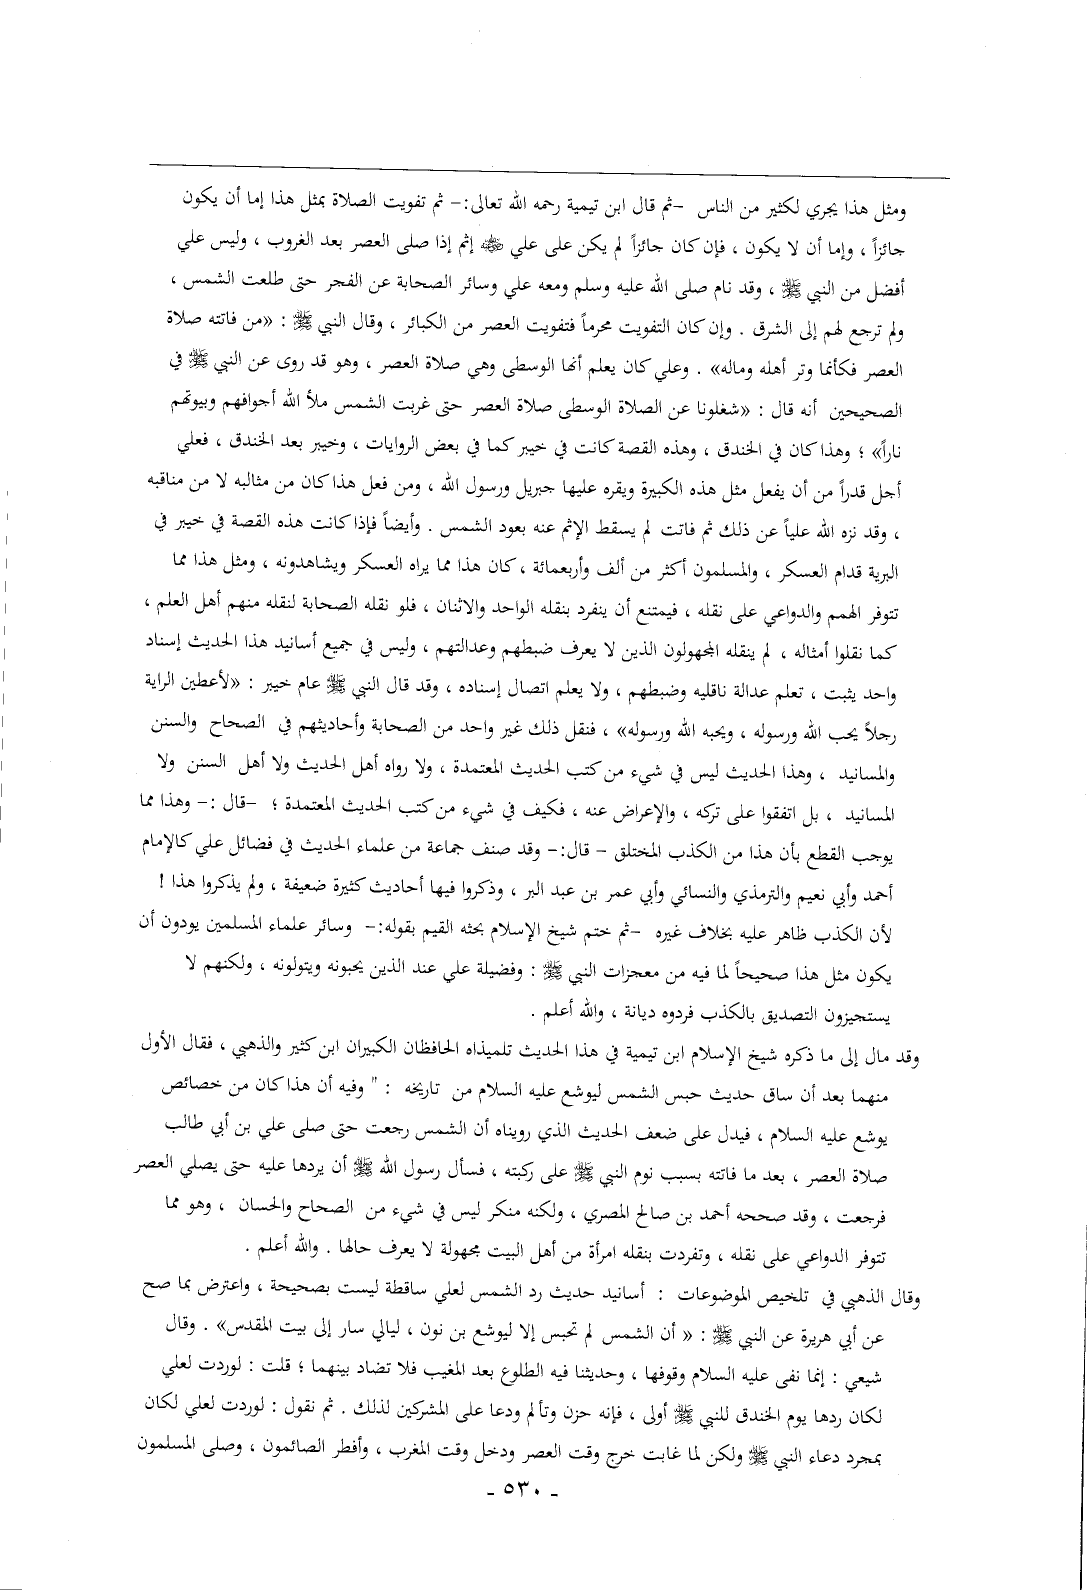 ومثل هذا يجري لكثير من الناس -ثم قال ابن تيمية رحمه الله تعالى:- ثم تفويت الصلاة بمثل هذا إما أن يكون
جائزاً ، وإما أن لا يكون ، فإن كان جائزاً لم يكن على علي رضي الله عنه إثم إذا صلى العصر بعد الغروب ، وليس علي
أفضل من النبي ﷺ ، وقد نام صلى الله عليه وسلم ومعه علي وسائر الصحابة عن الفجر حتى طلعت الشمس ،
ولم ترجع لهم إلى الشرق . وإن كان التفويت محرماً فتفويت العصر من الكبائر ، وقال النبي ﷺ : «من فاتته صلاة
العصر فكأنما وتر أهله وماله» . وعلي كان يعلم أنها الوسطى وهي صلاة العصر ، وهو قد روى عن النبي ﷺ في
الصحيحين أنه قال : «شغلونا عن الصلاة الوسطى صلاة العصر حتى غربت الشمس ملأ الله أجوافهم وبيوتهم
ناراً» ؛ وهذا كان في الخندق ، وهذه القصة كانت في خيبر كما في بعض الروايات ، وخيبر بعد الخندق ، فعلي
أجل قدراً من أن يفعل مثل هذه الكبيرة ويقره عليها جبريل ورسول الله ، ومن فعل هذا كان من مثالبه لا من مناقبه
، وقد نزه الله علياً عن ذلك ثم فاتت لم يسقط الإثم عنه بعود الشمس . وأيضاً فإذا كانت هذه القصة في خيبر في
البرية قدام العسكر ، والمسلمون أكثر من ألف وأربعمائة ، كان هذا مما يراه العسكر ويشاهدونه ، ومثل هذا مما
تتوفر الهمم والدواعي على نقله ، فيمتنع أن ينفرد بنقله الواحد والاثنان ، فلو نقله الصحابة لنقله منهم أهل العلم ،
كما نقلوا أمثاله ، لم ينقله المجهولون الذين لا يعرف ضبطهم وعدالتهم ، وليس في جميع أسانيد هذا الحديث إسناد
واحد يثبت ، تعلم عدالة ناقليه وضبطهم ، ولا يعلم اتصال إسناده ، وقد قال النبي ﷺ عام خيبر : «لأعطين الراية
رجلاً يحب الله ورسوله ، ويحبه الله ورسوله» ، فنقل ذلك غير واحد من الصحابة وأحاديثهم في الصحاح والسنن
والمسانيد ، وهذا الحديث ليس في شيء من كتب الحديث المعتمدة ، ولا رواه أهل الحديث ولا أهل السنن ولا
المسانيد ، بل اتفقوا على تركه ، والإعراض عنه ، فكيف في شيء من كتب الحديث المعتمدة ؛ -قال :- وهذا مما
يوجب القطع بأن هذا من الكذب المختلق - قال:- وقد صنف جماعة من علماء الحديث في فضائل علي كالإمام
أحمد وأبي نعيم والترمذي والنسائي وأبي عمر بن عبد البر ، وذكروا فيها أحاديث كثيرة ضعيفة ، ولم يذكروا هذا !
لأن الكذب ظاهر عليه بخلاف غيره -ثم ختم شيخ الإسلام بحثه القيم بقوله:- وسائر علماء المسلمين يودون أن
يكون مثل هذا صحيحاً لما فيه من معجزات النبي ﷺ : وفضيلة علي عند الذين يحبونه ويتولونه ، ولكنهم لا
يستجيزون التصديق بالكذب فردوه ديانة ، والله أعلم .
وقد مال إلى ما ذكره شيخ الإسلام ابن تيمية في هذا الحديث تلميذاه الحافظان الكبيران ابن كثير والذهبي ، فقال الأول
منهما بعد أن ساق حديث حبس الشمس ليوشع عليه السلام من تاريخه : " وفيه أن هذا كان من خصائص
يوشع عليه السلام ، فيدل على ضعف الحديث الذي رويناه أن الشمس رجعت حتى صلى علي بن أبي طالب
صلاة العصر ، بعد ما فاتته بسبب نوم النبي ﷺ على ركبته ، فسأل رسول الله ﷺ أن يردها عليه حتى يصلي العصر
فرجعت ، وقد صححه أحمد بن صالح المصري ، ولكنه منكر ليس في شيء من الصحاح والحسان ، وهو مما
تتوفر الدواعي على نقله ، وتفردت بنقله امرأة من أهل البيت مجهولة لا يعرف حالها . والله أعلم .
وقال الذهبي في تلخيص الموضوعات : أسانيد حديث رد الشمس لعلي ساقطة ليست بصحيحة ، واعترض بما صح
عن أبي هريرة عن النبي ﷺ : « أن الشمس لم تحبس إلا ليوشع بن نون ، ليالي سار إلى بيت المقدس» . وقال
شيعي : إنما نفى عليه السلام وقوفها ، وحديثنا فيه الطلوع بعد المغيب فلا تضاد بينهما ؛ قلت : لوردت لعلي
لكان ردها يوم الخندق للنبي ﷺ أولى ، فإنه حزن وتألم ودعا على المشركين لذلك . ثم نقول : لوردت لعلي لكان
بمجرد دعاء النبي ﷺ ولكن لما غابت خرج وقت العصر ودخل وقت المغرب ، وأفطر الصائمون ، وصلى المسلمون
- ٥٣٠ -